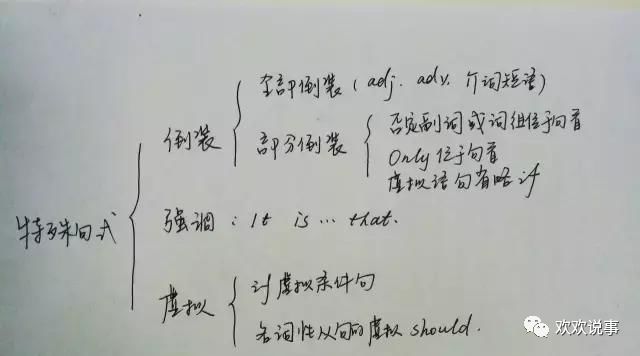 特殊句式
倒装
全部倒装(adj. adv. 介词短语)
部分倒装
否定副词或词组位于句首
Only位于句首
虚拟语句省略if
强调:It is…that.
虚拟
if虚拟条件句
名词性从句的虚拟should.
欢欢说事